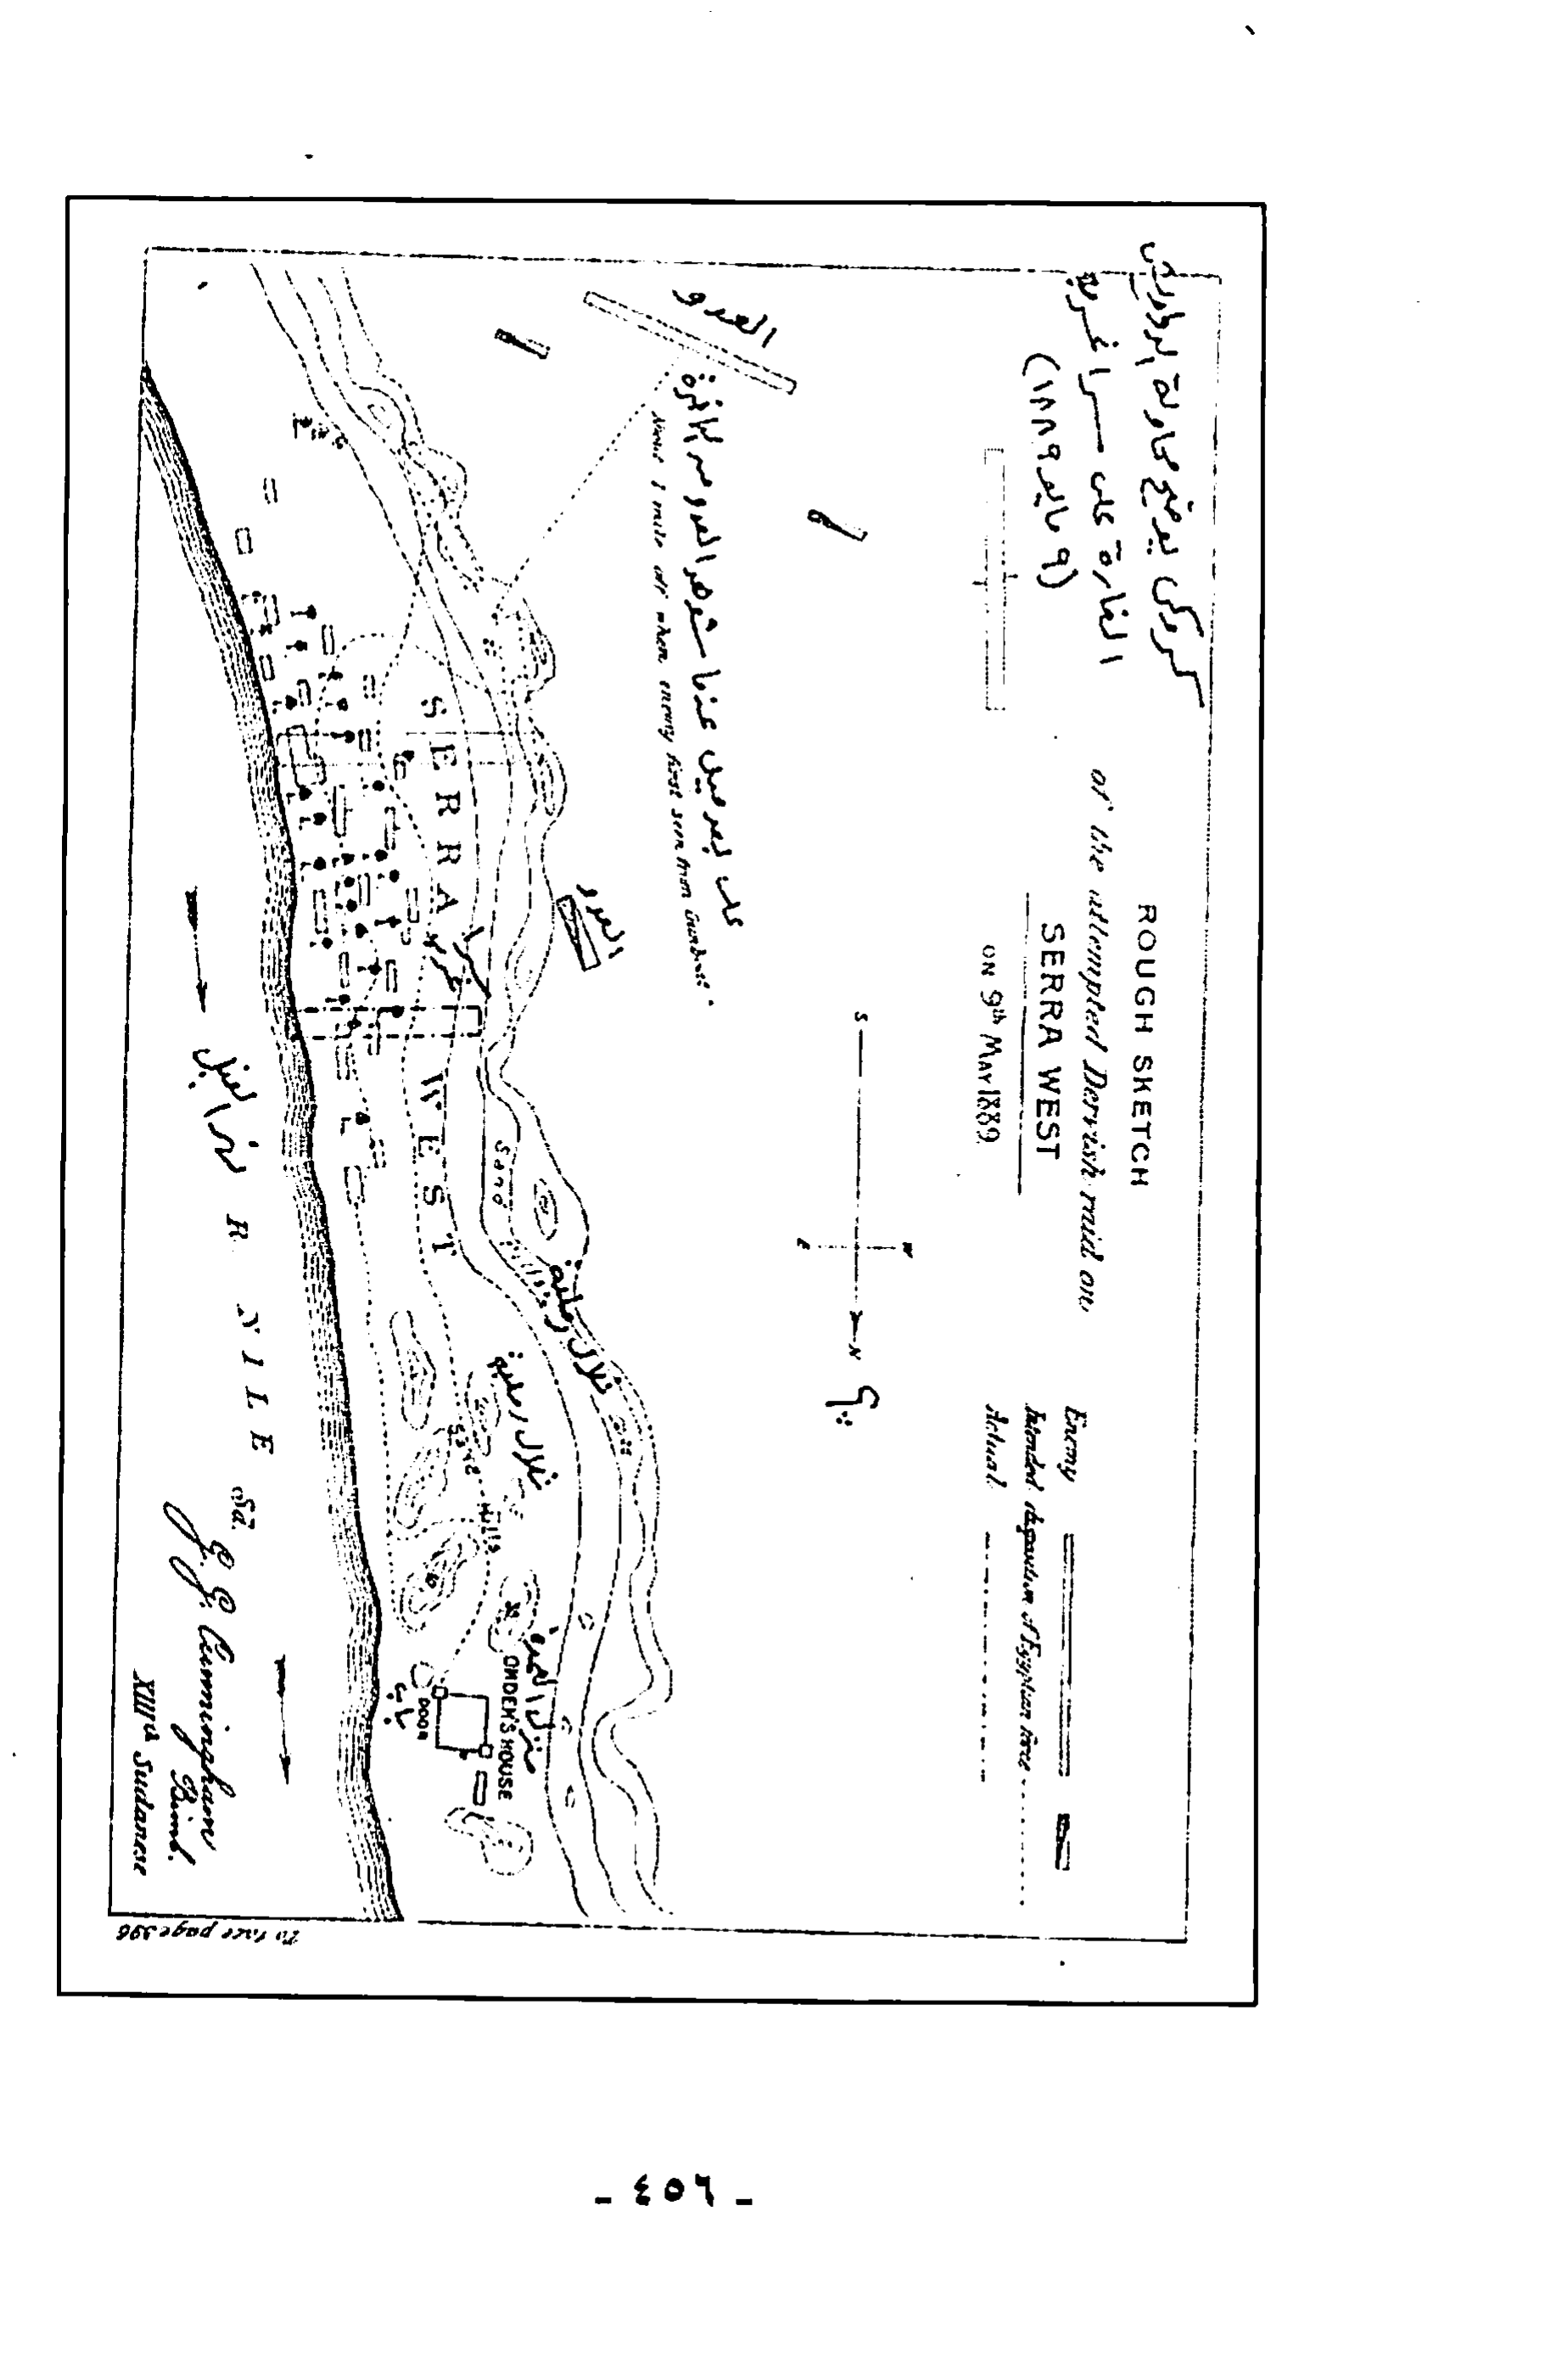 كروكى يوضح محاولة الدراويش
الغارة على سرا غرب
(٩ مايو ١٨٨٩)
ROUGH SKETCH
of the attempted Dervish raid on
SERRA WEST
ON 9th MAY 1889
Enemy
Intended disposition of Egyptian force
Actual
S
N
E
W
العدو
على بعد ميل عندما شوهد العدو من
About 1 mile off when enemy first seen from
العدو
SERRA WEST
سرا غرب
Sand
تلال رملية
تلال رملية
HILLS
منزل العمدة
OMDEH'S HOUSE
DOOR
باب
نهر النيل
R NILE
Sd.
G. G. Cunningham
Bimb.
XIIIth Sudanese
To face page 396
- ٤٥٦ -